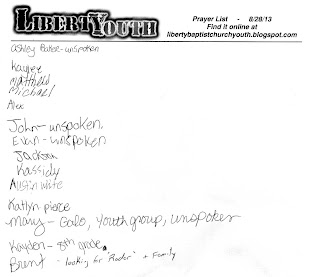 LIBERTYYOUTH
Prayer List - 8/28/13
Find it online at
libertybaptistchurchyouth.blogspot.com
Ashley Baker-unspoken
Kaylee
Matthew
Michael
Alex
John-unspoken,
Evan-unspoken
Jackson
Kassidy
Austin White
Katlyn pierce
Mary- Galo, Youth group, unspoken
Kayden- 8th grade.
Brent - looking for " " + Family